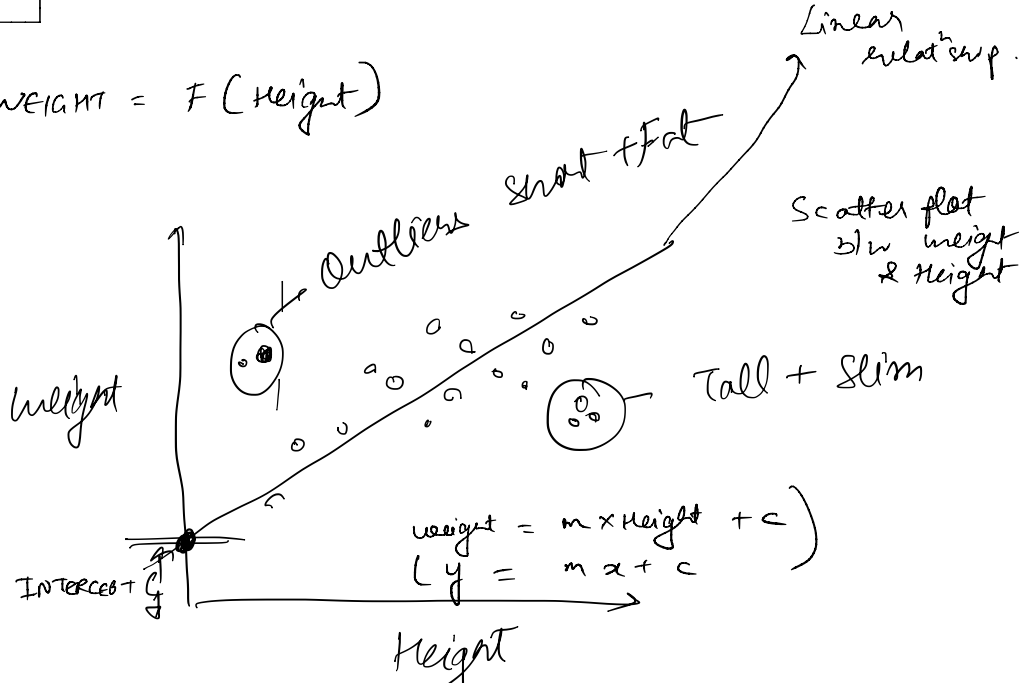 Linear
relatⁿship.
WEIGHT = F (Height)
Outliers Short + Fat
Scatter plot
b/w weight
& Height
Weight
Tall + Slim
weight = m x Height + c )
( y = m x + c
INTERCEPT
Height